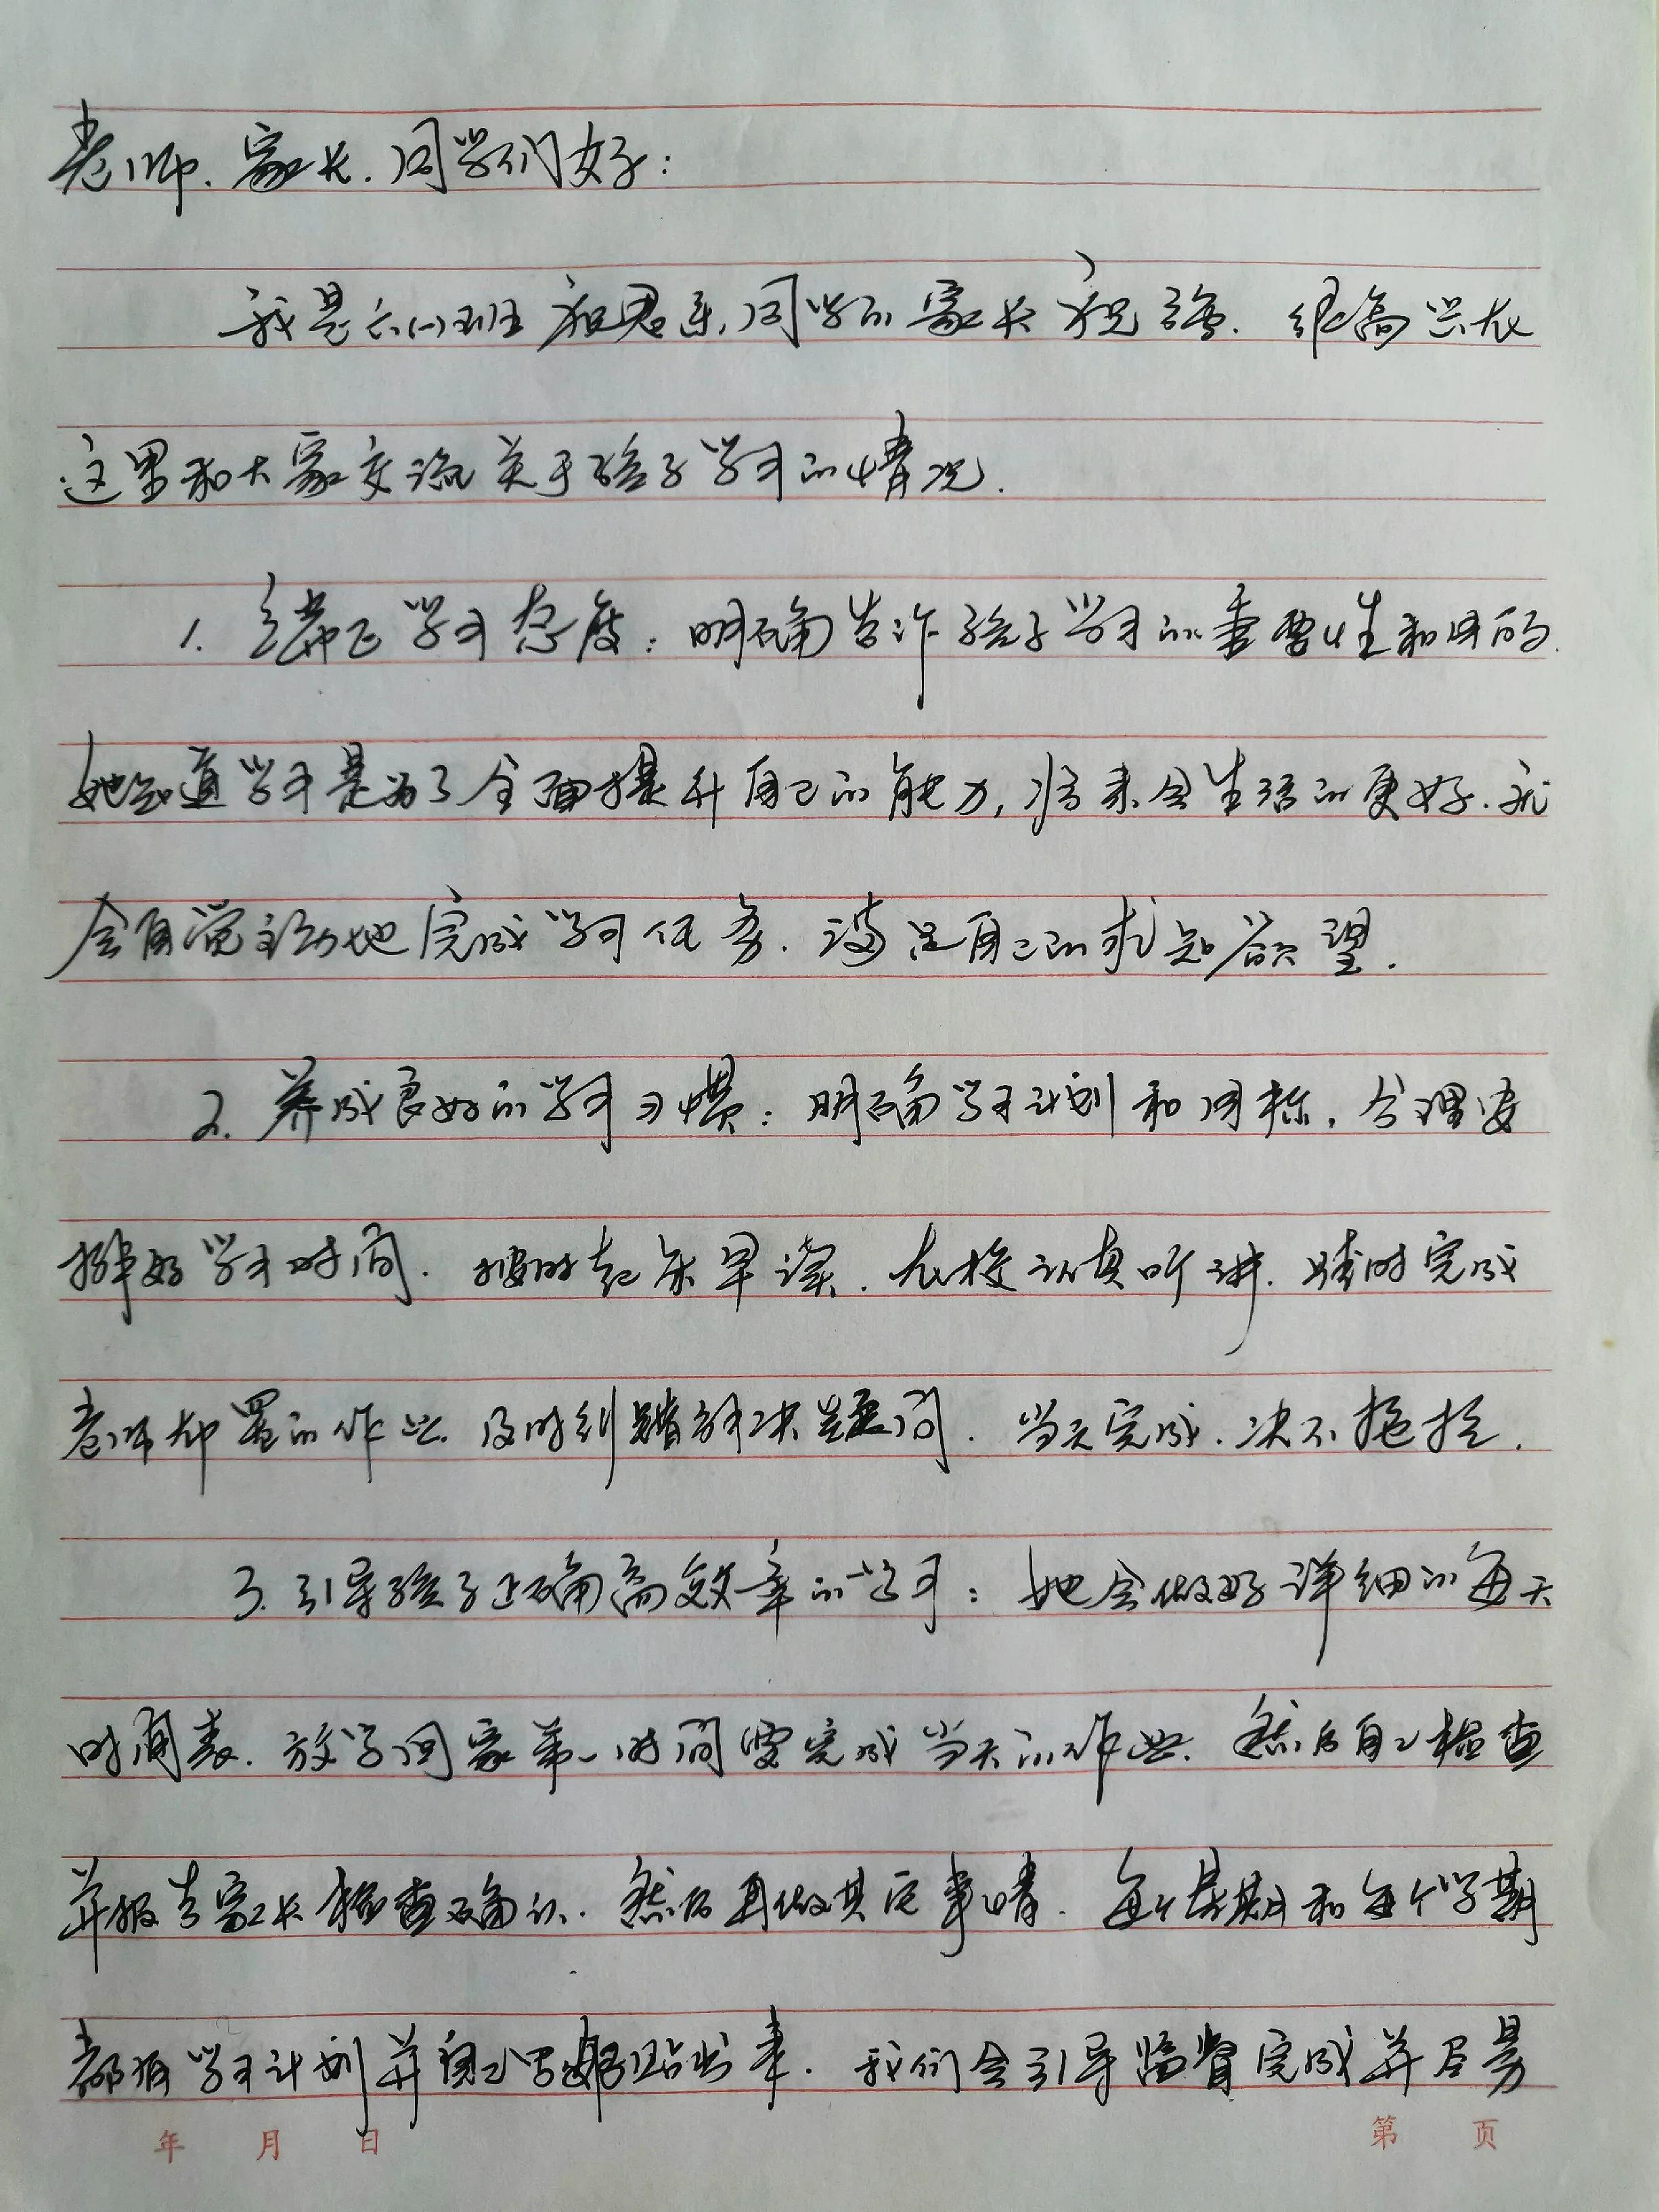 老师、家长、同学们好：
我是六(1)班祝思、同学的家长祝.很高兴在
这里和大家交流关于孩子学习的情况.
1.端正学习态度：明确告诉孩子学习的重要性和目的.
她知道学习是为了全面提升自己的能力,将来会生活的更好.就
会自觉主动地完成学习任务.满足自己的求知欲望.
2.养成良好的学习习惯：明确学习计划和目标,合理安
排好学习时间.按时起床早读.在校认真听讲.按时完成
老师布置的作业.及时纠错解决疑问.当天完成.决不拖拉.
3.引导孩子正确高效率的学习：她会做好详细的每天
时间表.放学回家第一时间要完成当天的作业.然后自己检查
并报告家长检查确认.然后再做其它事情.每个星期和每个学期
都有学习计划并自己写好贴出来.我们会引导监督完成并尽量
年 月 日 第 页